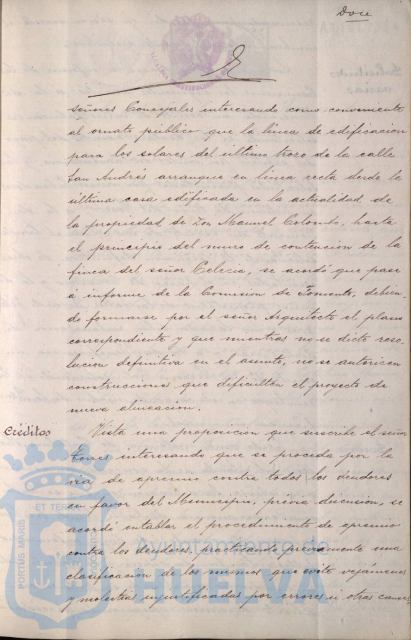 Doce
señores Concejales interesando como conveniente
al ornato público que la línea de edificacion
para los solares del último trozo de la calle
San Andrés arranque en línea recta desde la
última casa edificada en la actualidad, de
la propiedad de Don Manuel Colombo, hasta
el principio del muro de contencion de la
finca del señor, se acordó que pase
á informe de la Comision de Fomento, debien-
do formarse por el señor Arquitecto el plano
correspondiente y que mientras no se dicte reso-
lucion definitiva en el asunto, no se autoricen
construcciones que dificulten el proyecto de
nueva alineacion.
Créditos
Vista una proposicion que suscribe el señor
interesando que se proceda por la
via de apremio contra todos los deudores
en favor del Municipio, previa discusion, se
acordó entablar el procedimiento de apremio
contra los deudores, practicando previamente una
clarificacion de los mismos que evite vejámenes
y molestias injustificadas por errores ú otras causas
Ayuntamiento de
HUELVA
PORTUS MARIS
ET TERRAE